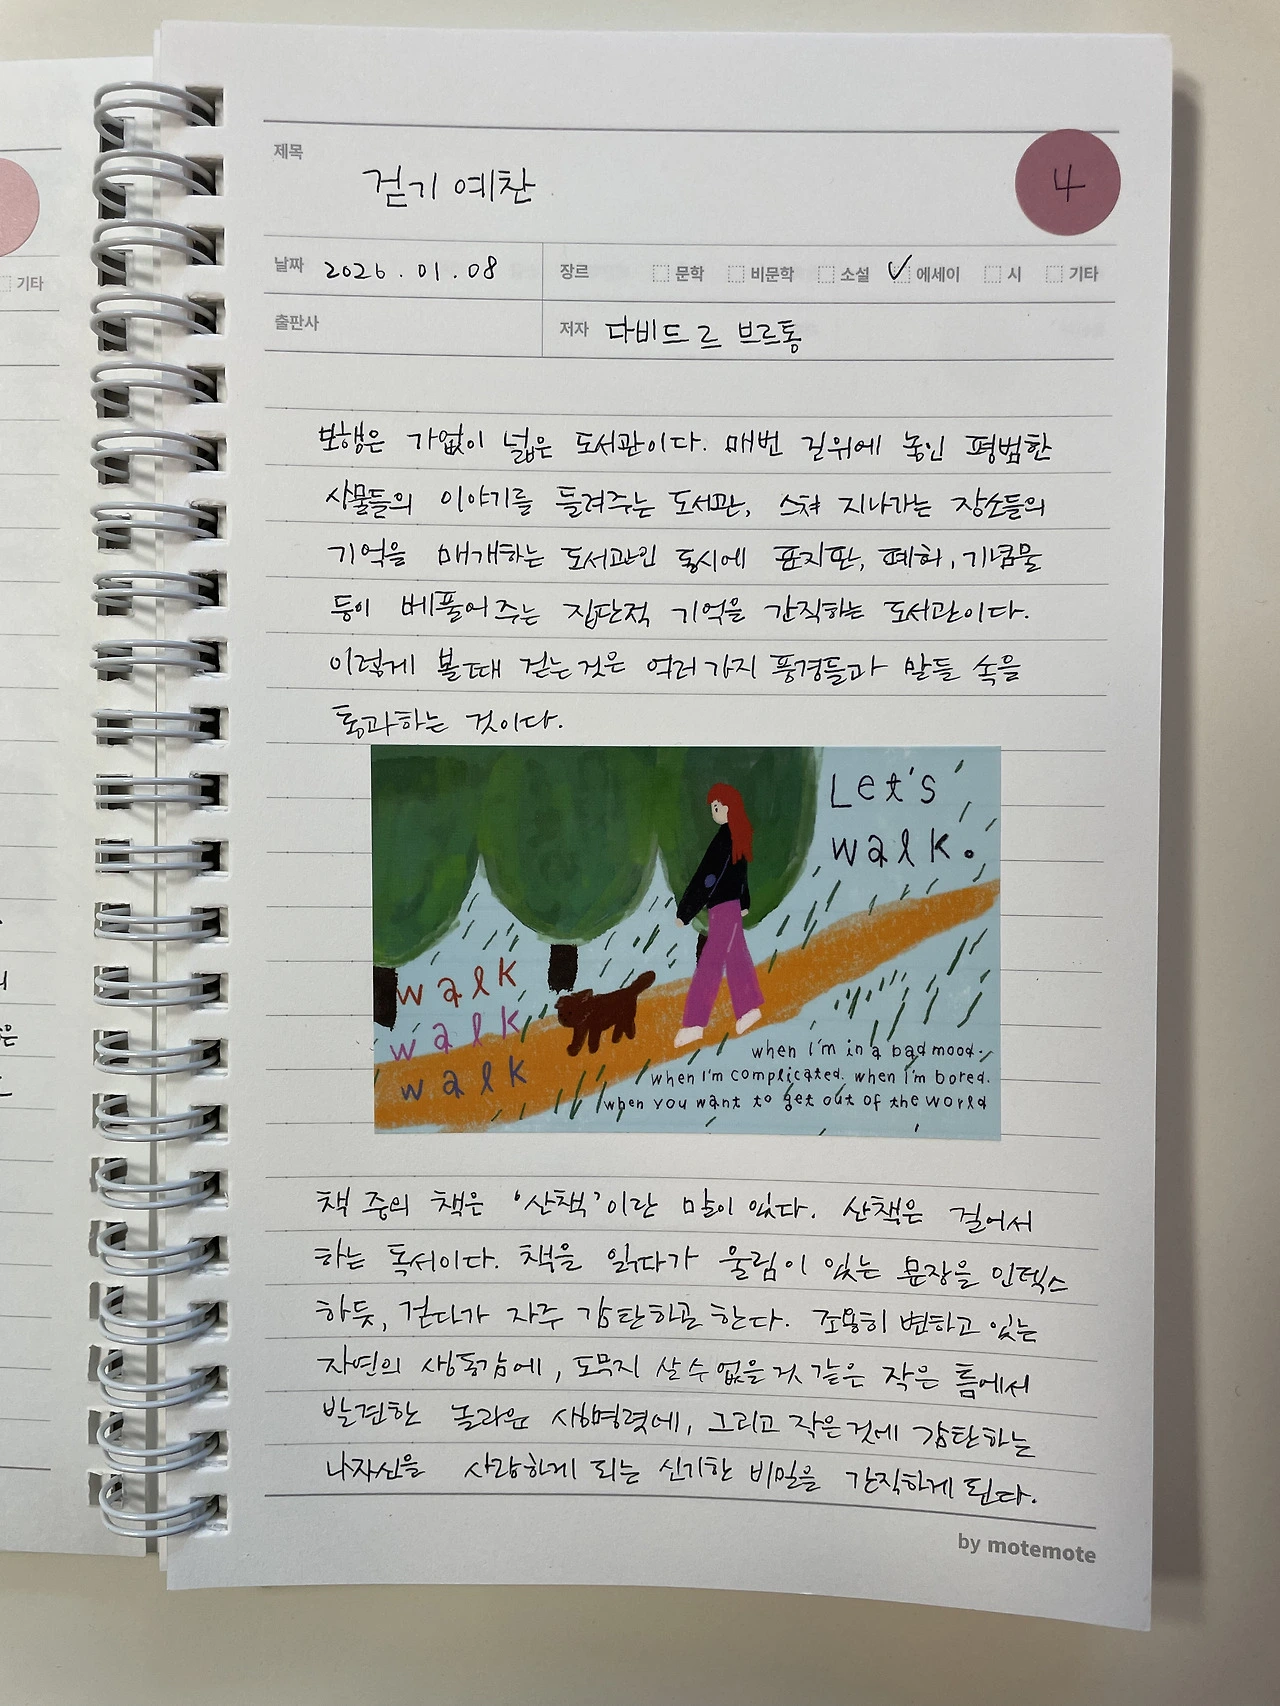 제목
걷기 예찬
4
날짜 2026.01.08
장르 문학 비문학 소설 에세이 시 기타
출판사
저자 다비드 르 브르통
기타
보행은 가없이 넓은 도서관이다. 매번 길위에 놓인 평범한
사물들의 이야기를 들려주는 도서관, 스쳐 지나가는 장소들의
기억을 매개하는 도서관인 동시에 표지판, 폐허, 기념물
등이 베풀어주는 집단적 기억을 간직하는 도서관이다.
이렇게 볼때 걷는것은 여러가지 풍경들과 말들 속을
통과하는 것이다.
Let's
walk.
walk
walk
walk
when I'm in a bad mood.
when I'm complicated. when I'm bored.
when you want to get out of the world
책 중의 책은 '산책'이란 말이 있다. 산책은 걸어서
하는 독서이다. 책을 읽다가 울림이 있는 문장을 인덱스
하듯, 걷다가 자주 감탄하곤 한다. 조용히 변하고 있는
자연의 생동감에, 도무지 살수없을것 같은 작은 틈에서
발견한 놀라운 생명력에, 그리고 작은것에 감탄하는
나자신을 사랑하게 되는 신기한 비밀을 간직하게 된다.
by motemote